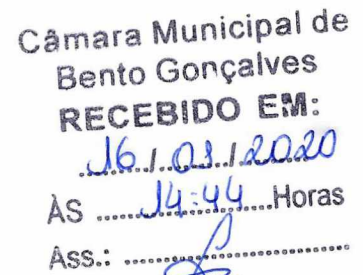 Câmara Municipal de
Bento Gonçalves
RECEBIDO EM:
16 / 01 / 2020
ÀS 14:44 Horas
Ass.: